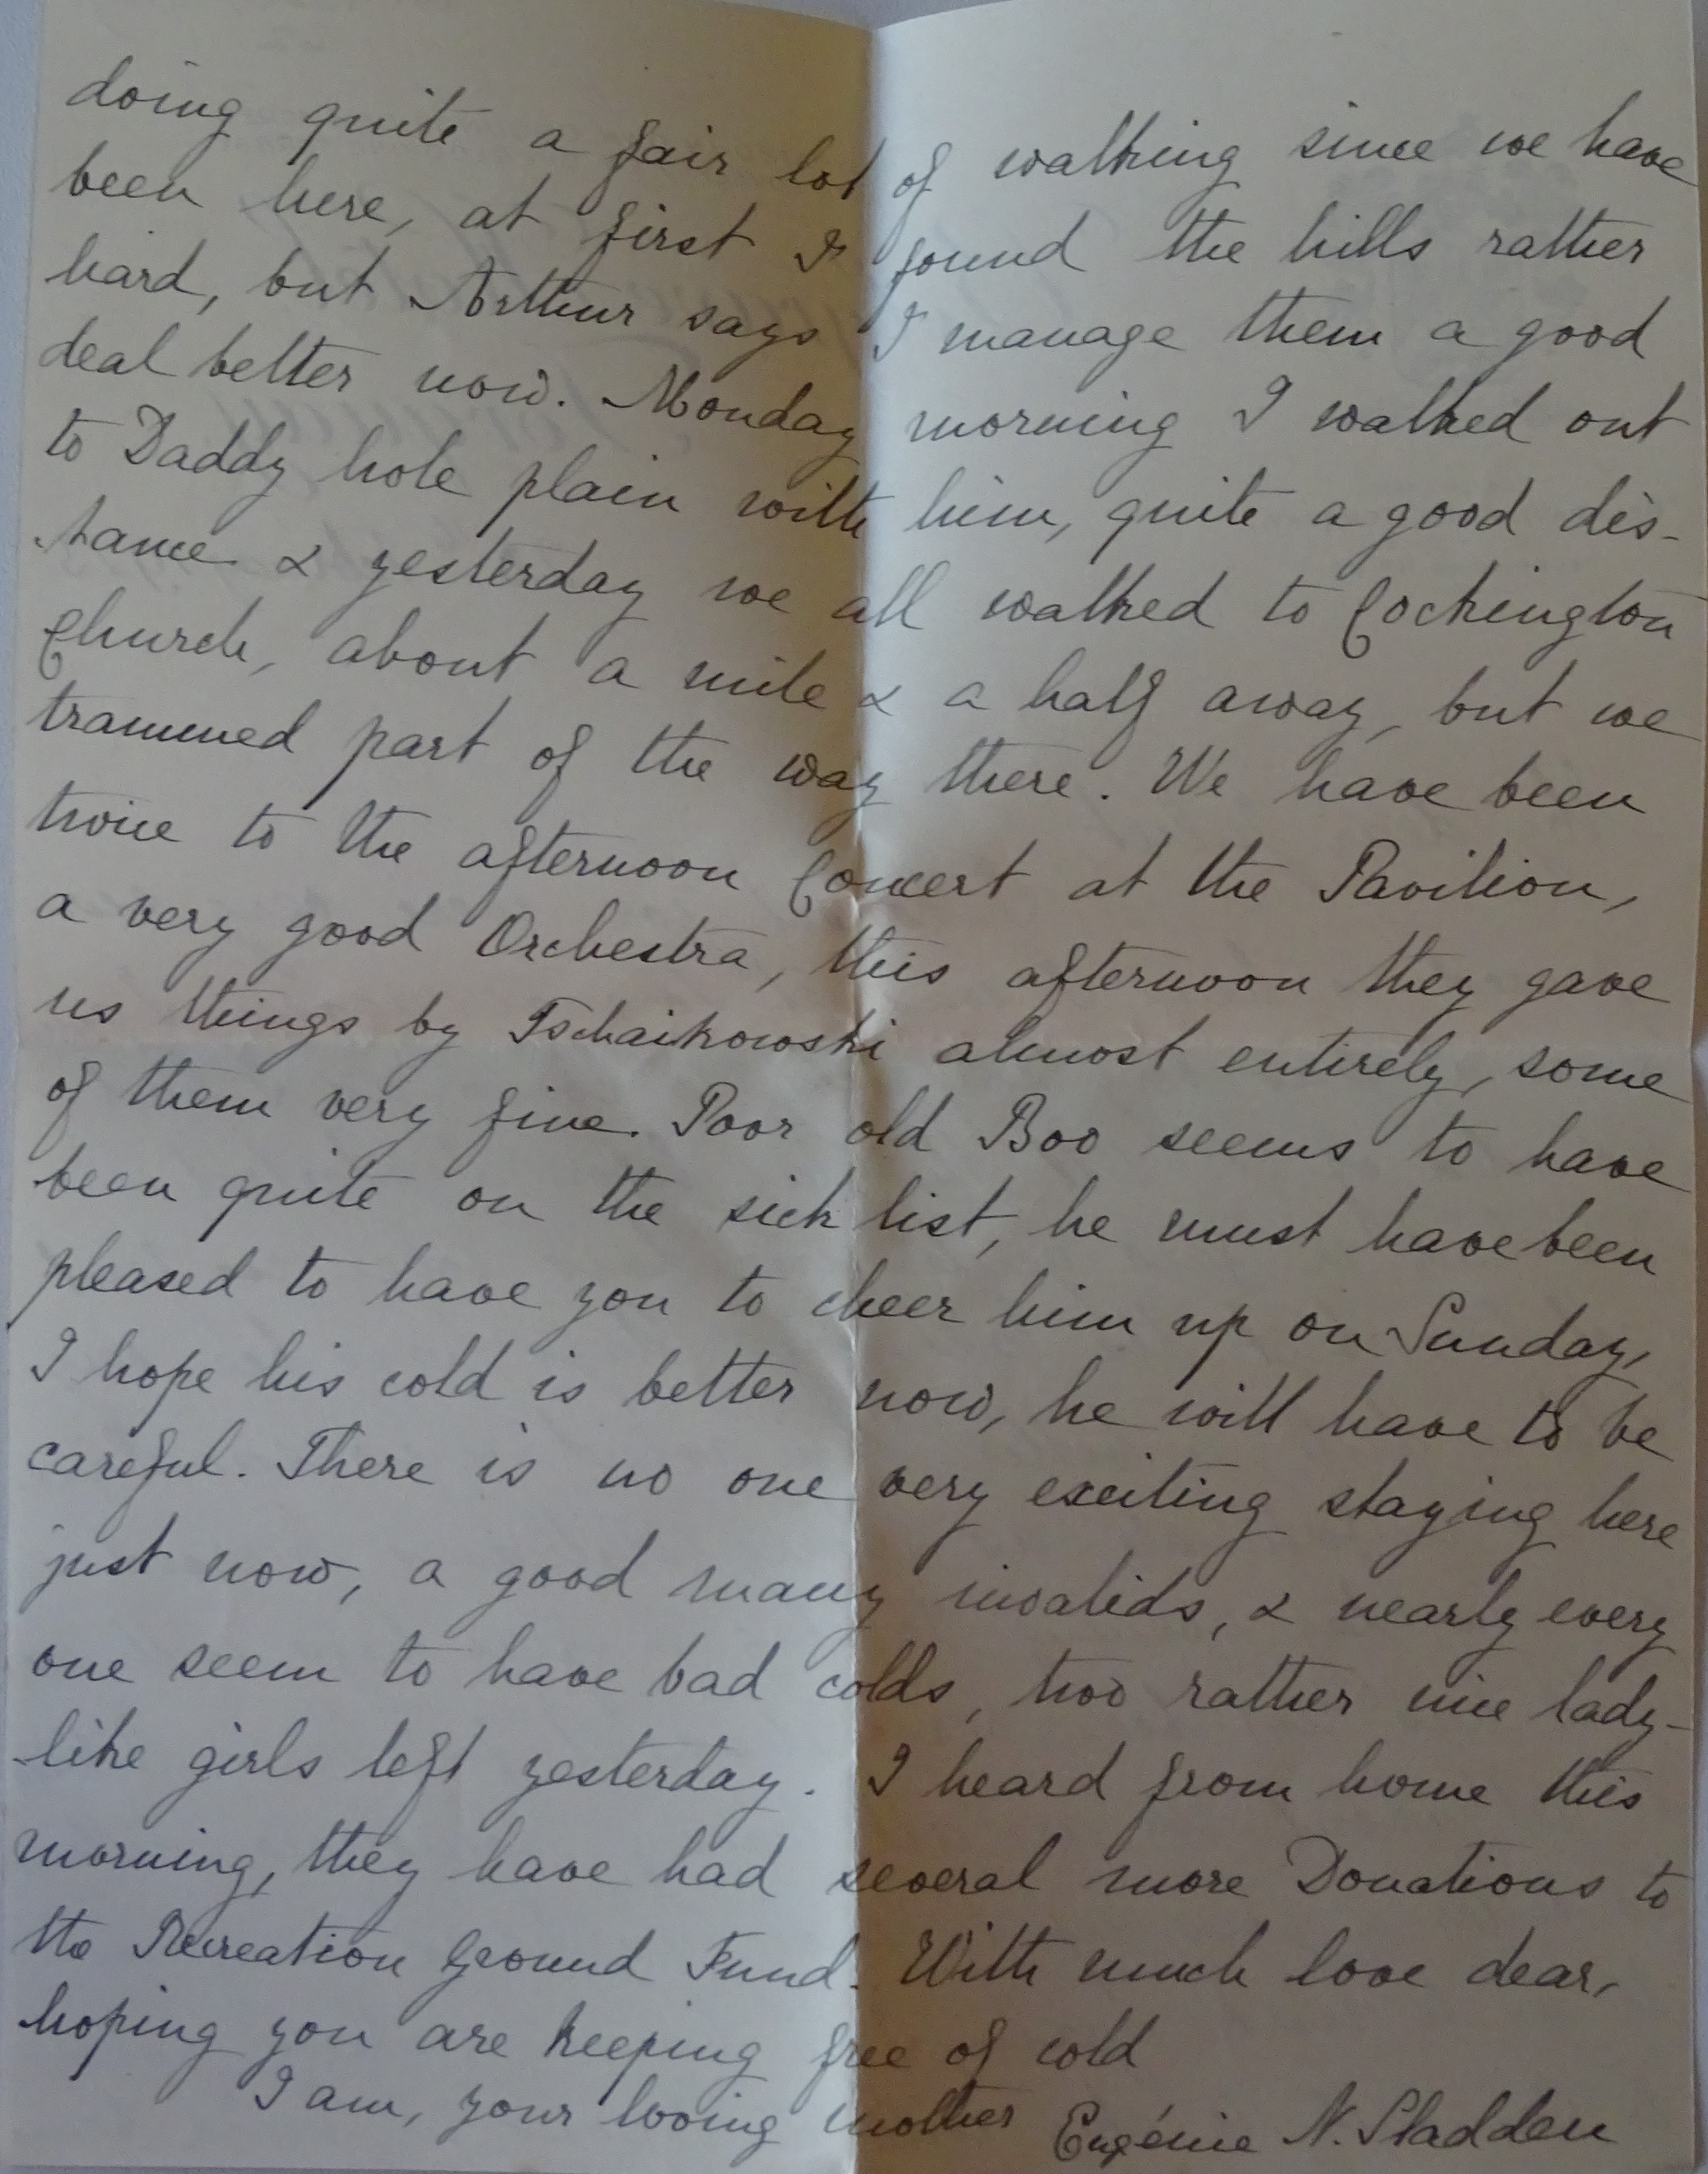 doing quite a fair lot of walking since we have
been here, at first I found the hills rather
hard, but Arthur says I manage them a good
deal better now. Monday morning I walked out
to Daddy hole plain with him, quite a good dis-
tance & yesterday we all walked to Cockington
Church, about a mile & a half away, but we
trammed part of the way there. We have been
twice to the afternoon Concert at the Pavilion,
a very good Orchestra, this afternoon they gave
us things by Tschaikowski almost entirely, some
of them very fine. Poor old Boo seems to have
been quite on the sick list, he must have been
pleased to have you to cheer him up on Sunday,
I hope his cold is better now, he will have to be
careful. There is no one very exciting staying here
just now, a good many invalids, & nearly every
one seem to have bad colds, two rather nice lady-
like girls left yesterday. I heard from home this
morning, they have had several more Donations to
the Recreation Ground Fund. With much love dear,
hoping you are keeping free of cold
I am, your loving mother Eugénie N. Sladden